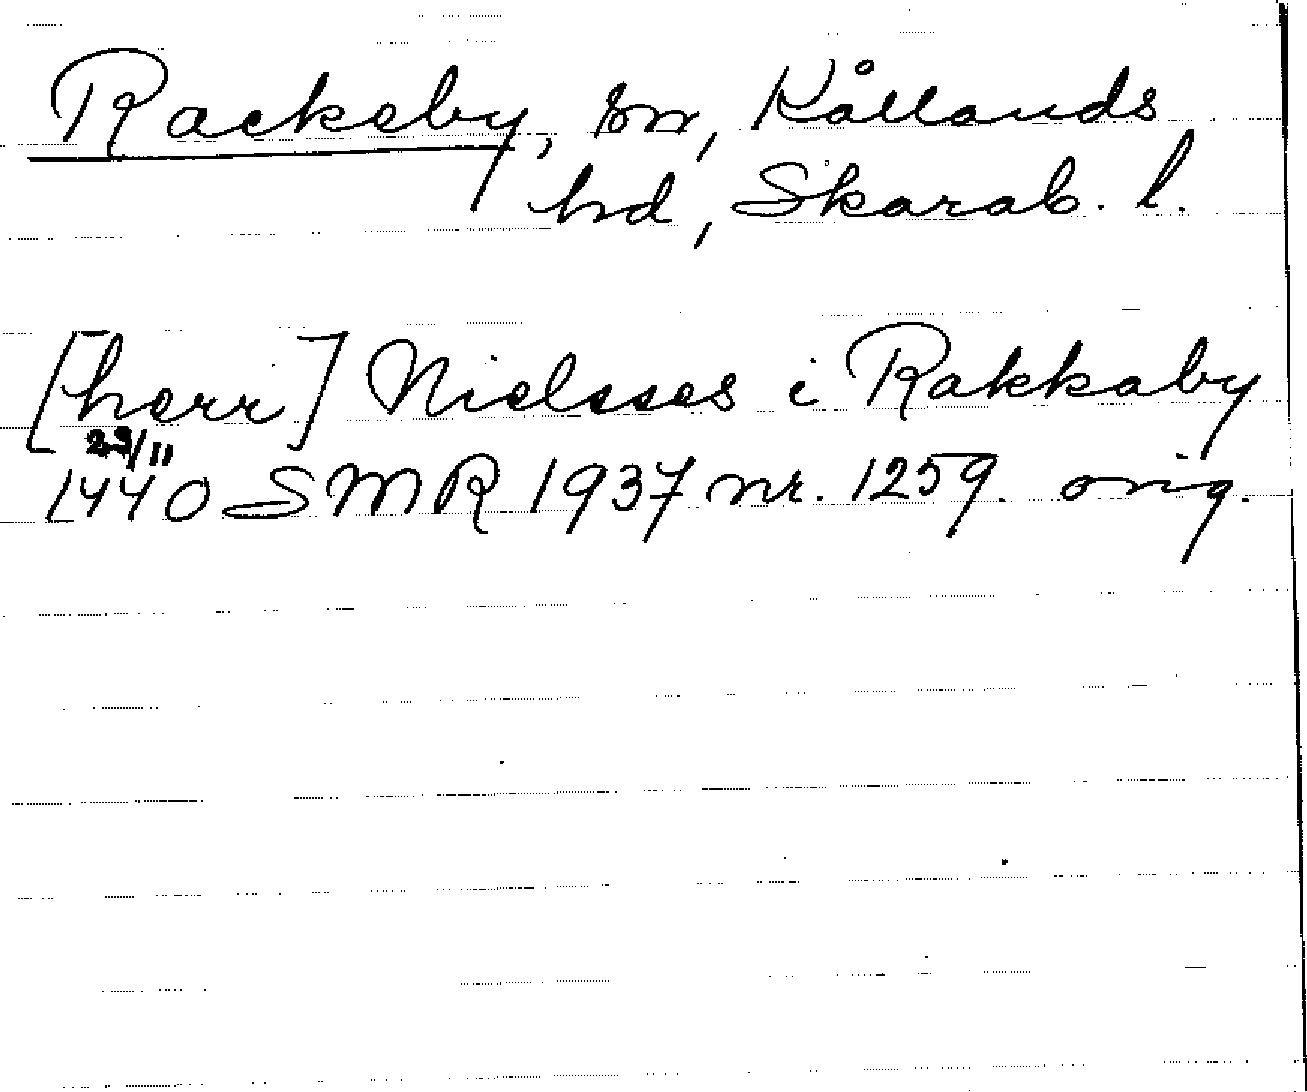 Rackeby, sn, Kållands
hd, Skarab. l.
[herr] Nielsses i Rakkaby
23/11
1440 SMR 1937 nr. 1259. orig.